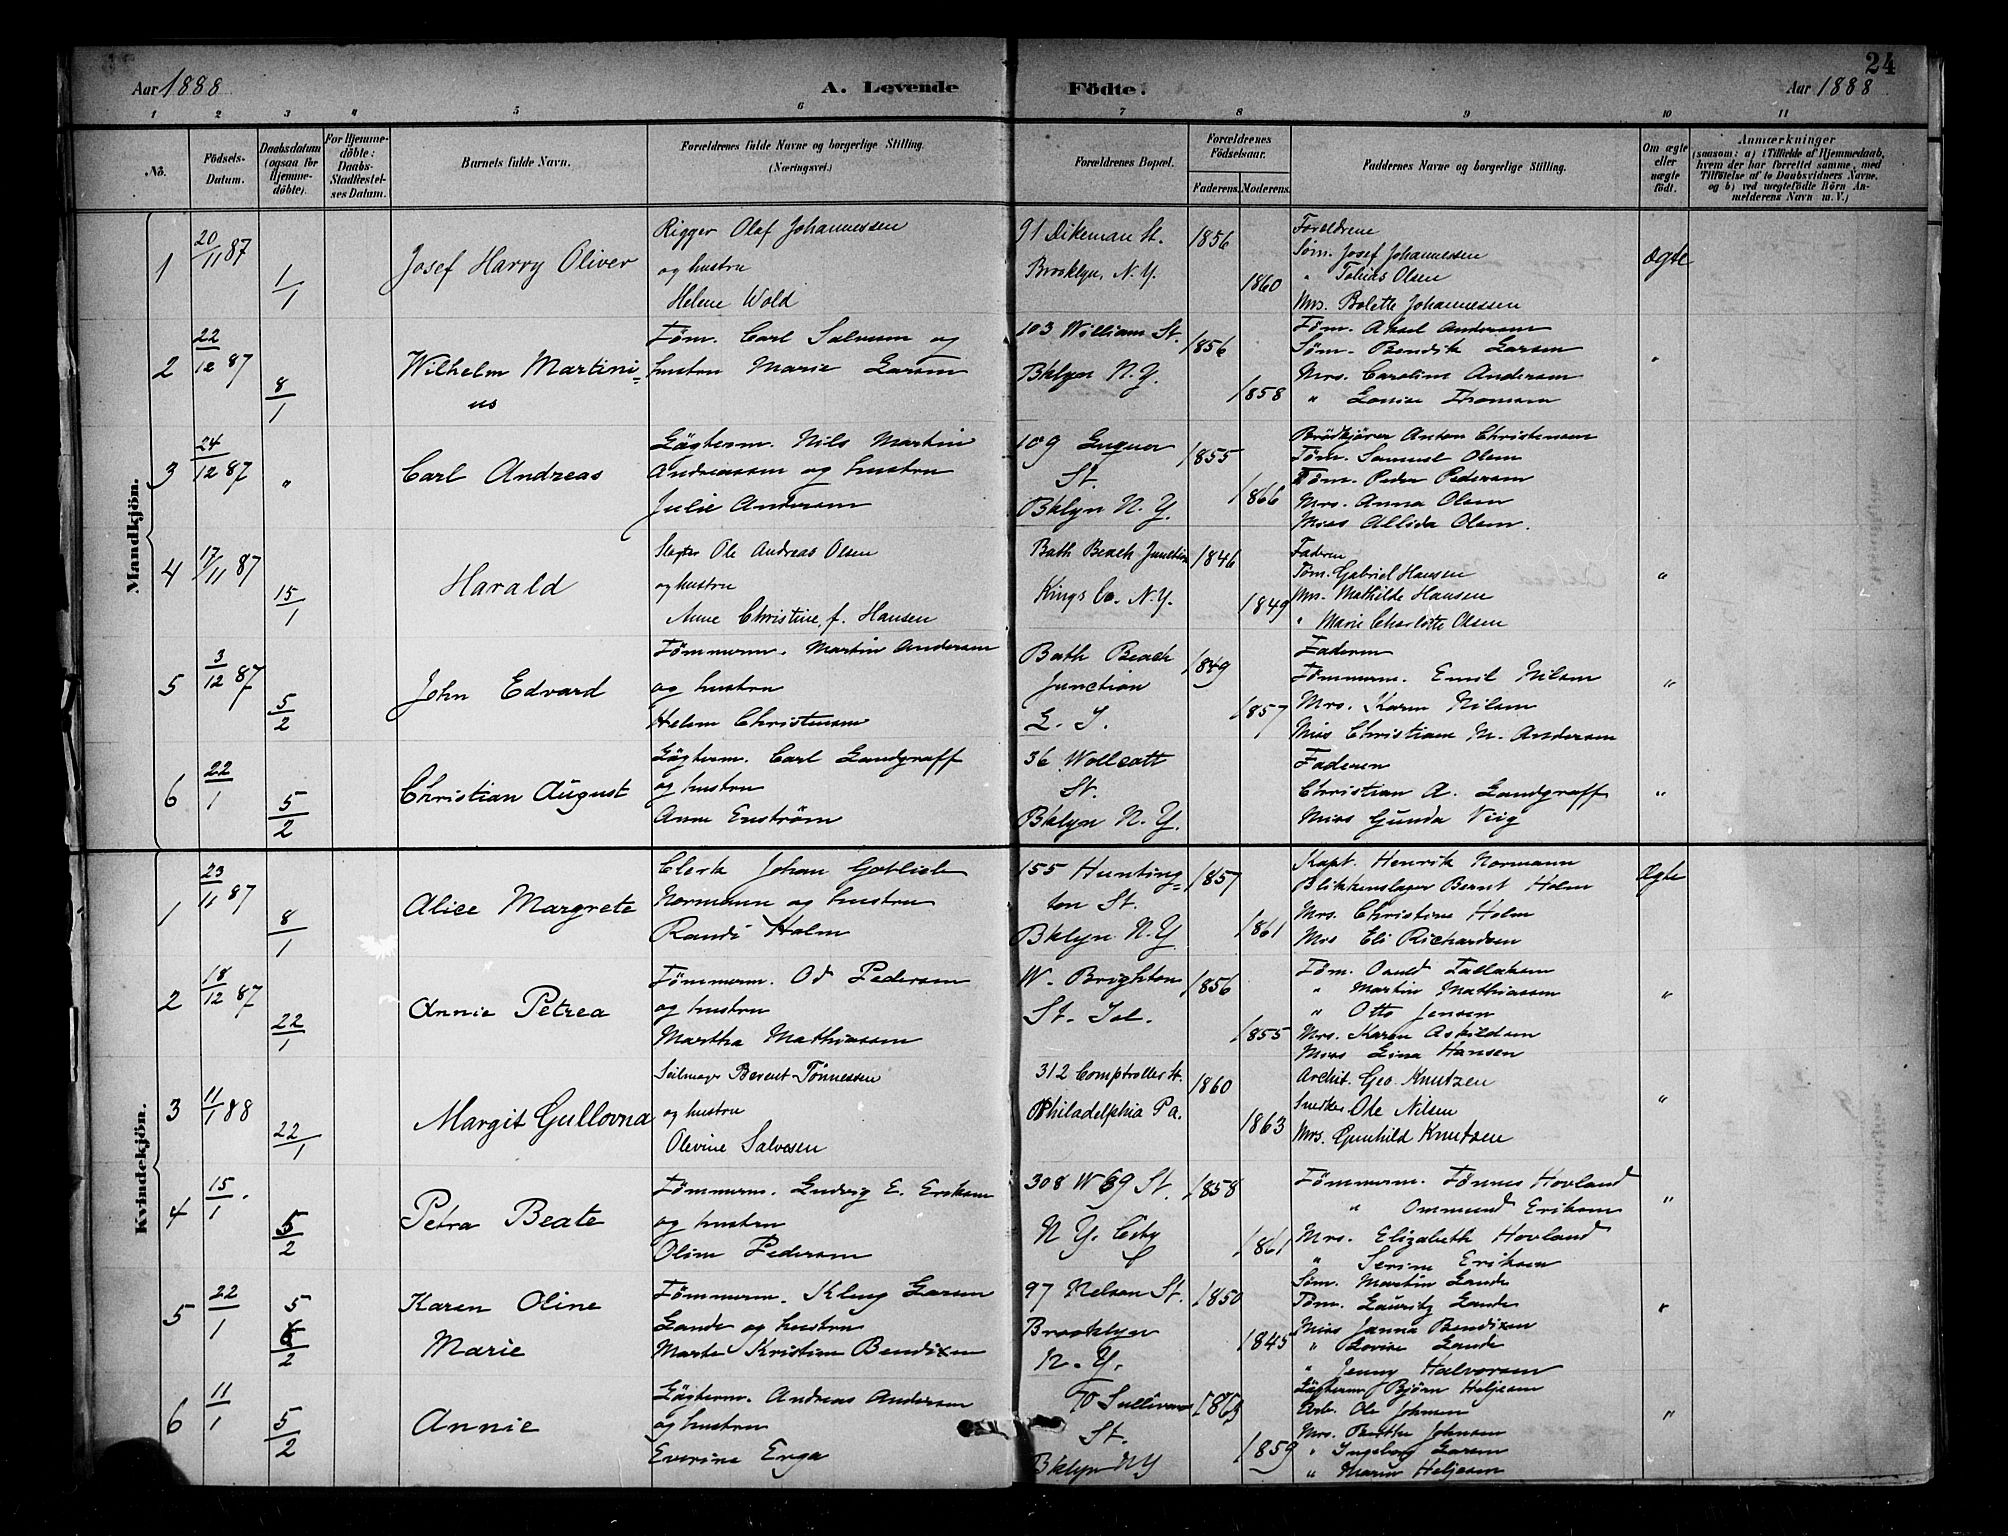 24
Aar 1888
A. Levende Födte.
Aar 1888
1 2 3 4 5 6 7 8 9 10 11
No.
Födsels-
Datum.
Daabsdatum
(ogsaa för
Hjemme-
döbte).
For Hjemme-
döbte:
Daabs-
Stadfæstel-
ses Datum.
Barnets fulde Navn.
Forældrenes fulde Navne og borgerlige Stilling.
(Næringsvei.)
Forældrenes Bopæl.
Forældrenes
Födselsaar.
Faderens. Moderens.
Faddernes Navne og borgerlige Stilling.
Om ægte
eller
uægte
født.
Anmærkninger
(saasom: a) i Tilfælde af Hjemmedaab,
hvem der har forrettet samme, med
Tilföielse af to Daabsvidners Navne,
og b) ved uægtefödte Börn An-
melderens Navn m. V.)
Mandkjön.
1
20/11 87
1/1
Josef Harry Oliver
Rigger Olaf Johannessen
og hustru
Helene Wold
91 Dikeman St.
Brooklyn, N. Y.
1856
1860
Forældrene
Søm. Josef Johannessen
" Tobias Olsen
Mrs. Bolette Johannessen
Ægte
2
22/12 87
8/1
Wilhelm Martini=
us
Töm. Carl Salvesen og
hustru Marie Larsen
103 William St.
Bklyn N. Y.
1856
1858
Töm. Aksel Andersen
Söm. Bendik Larsen
Mrs. Caroline Andersen
" Louise Thomsen
"
3
24/12 87
"
Carl Andreas
Lägterm. Nils Martin
Andreassen og hustru
Julie Andersen
109 Luquer
St.
Bklyn N. Y.
1855
1866
Brödkjörer Anton Christensen
Töm. Samuel Olsen
Töm. Peder Pedersen
Mrs. Anna Olsen
Miss Allida Olsen.
4
17/11 87
15/1
Harald
Ole Andreas Olsen
og hustru
Anne Christine, f. Hansen
Bath Beach Junction
Kings Co. N. Y.
1846
1849
Faderen
Töm. Gabriel Hansen
Mrs. Mathilde Hansen
" Marie Charlotte Olsen
"
5
3/12 87
5/2
John Edvard
Tömmerm. Martin Andersen
og hustru
Helene Christensen
Bath Beach
Junction
L. I.
1849
1857
Faderen
Tömmerm. Emil Nilsen
Mrs. Karen Nilsen
Miss Christiane M. Andersen
"
6
22/1
5/2
Christian August
Lägterm. Carl Landgraff
og hustru
Anna Enström
36 Wollcott
St.
Bklyn N. Y.
Faderen
Christian A. Landgraff
Miss Gunda Viig
"
Kvindekjön.
1
23/11 87
8/1
Alice Margrete
Clerk Johan Gotlieb
Normann og hustru
Randi Holm
155 Hunting=
ton St.
Bklyn. N. Y
1857
1861
Kapt. Henrik Normann
Blikkenslager Bernt Holm
Mrs. Christine Holm
Mrs Eli Richardsen
Ægte
2
18/12 87
22/1
Annie Petrea
Tömmerm. Od Pedersen
og hustru
Martha Mathiassen
W. Brighton
St. Isl.
1856
1855
Töm. Tallaksen
" Martin Mathiassen
" Otto Jensen
Mrs. Karen Askildsen
Miss Lina Hansen
"
3
11/1 88
22/1
Margit Gullovna
Seilmager Berent Tönnessen
og hustru
Olevine Salvesen
312 Comptroller St.
Philadelphia Pa.
1860
1863
Archit. Geo. Knutzen
Snedker Ole Nilsen
Mrs. Gunhild Knutzen
"
4
15/1
5/2
Petra Beate
Tömmerm. Ludvig E. Eriksen
og hustru
Oline Pedersen
308 W 69 St.
N. Y. City
1858
1861
Tömmerm. Tönnes Hovland
" Ommund Eriksen
Mrs. Elizabeth Hovland
" Serine Eriksen
"
5
22/1
5/2
Karen Oline
Marie
Tömmerm. Kleng Larsen
Lande og hustru
Marte Kristine Bendixen
97 Nelson St.
Brooklyn
N. Y.
1850
1845
Söm. Martin Lande
Töm. Lauritz Lande
Miss Janna Bendixen
" Lovise Lande
" Jenny Halvorsen
"
6
11/1
5/2
Annie
Lägterm. Andreas Andersen
og hustru
Everine Enga
70 Sullivan
St.
Bklyn N Y
1859
Lägterm Björn Heljesen
Arb. Ole Johnsen
Mrs. Berthe Johnsen
" Ingeborg Larsen
" Maria Heljesen
"